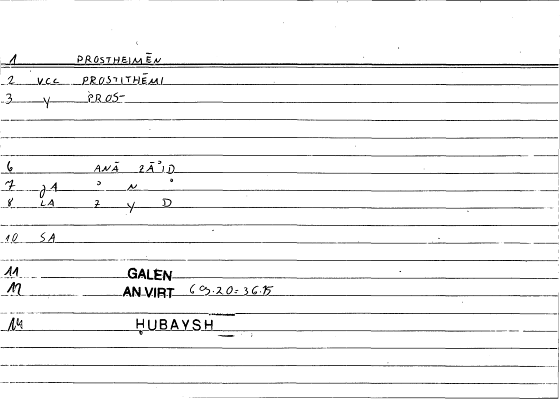 1 PROSTHEIMĒN
2 VCC PROSTITHĒMI
3 y PROS-
6 ANĀ ZĀʾID
7 JA ʾ N ʾ
8 LA Z y D
10 SA
11 GALEN
12 AN VIRT 69.20=36.15
14 ḤUBAYSH